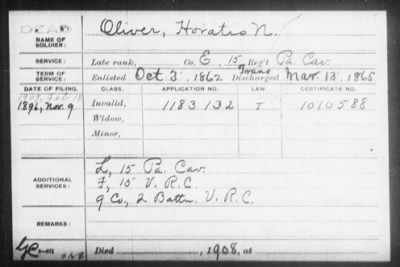 DEAD
NAME OF SOLDIER: Oliver, Horatio N.
SERVICE: Late rank, Co. E, 15 Reg't Pa. Cav.
TERM OF SERVICE: Enlisted Oct 3, 1862 Discharged Mar. 13, 1865
DATE OF FILING. CLASS. APPLICATION NO. LAW. CERTIFICATE NO.
1896, Nov. 9 Invalid, 1183 132 I 1010588
Widow,
Minor,
ADDITIONAL SERVICES: L, 15 Pa. Cav.
F, 15 V. R. C.
9 Co, 2 Battn. V. R. C.
REMARKS:
Died , 1908, at